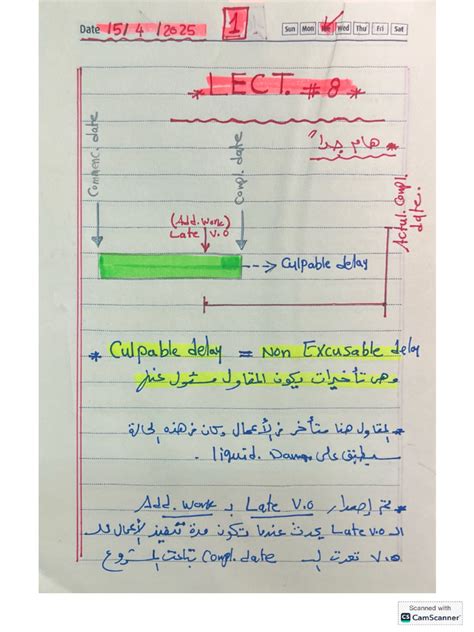 Date 15/ 4 /2025
1
Sun Mon Tue Wed Thu Fri Sat
* LECT. #8 *
* هام جداً
Commenc. date
Compl. date
Actul. Compl. date.
(Add. work)
Late V.O
Culpable delay
* Culpable delay = Non Excusable delay
وهى تأخيرات يكون المقاول مسئول عنها
* المقاول هنا متأخر فى الأعمال وكان فى هذه الحالة
سيطبق على liquid. Dam
* تم إصدار Late V.O بـ Add. work
الـ Late V.O يحدث عندما تكون مدة تنفيذ الأعمال للـ
V.O تعدت الـ Compl. date بتاعت المشروع
Scanned with
CS CamScanner